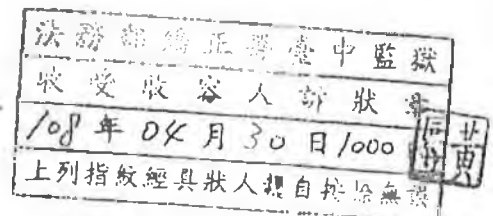 法務部矯正署臺中監獄
收受收容人訴狀章
108年04月30日1000
上列指紋經具狀人親自按捺無誤